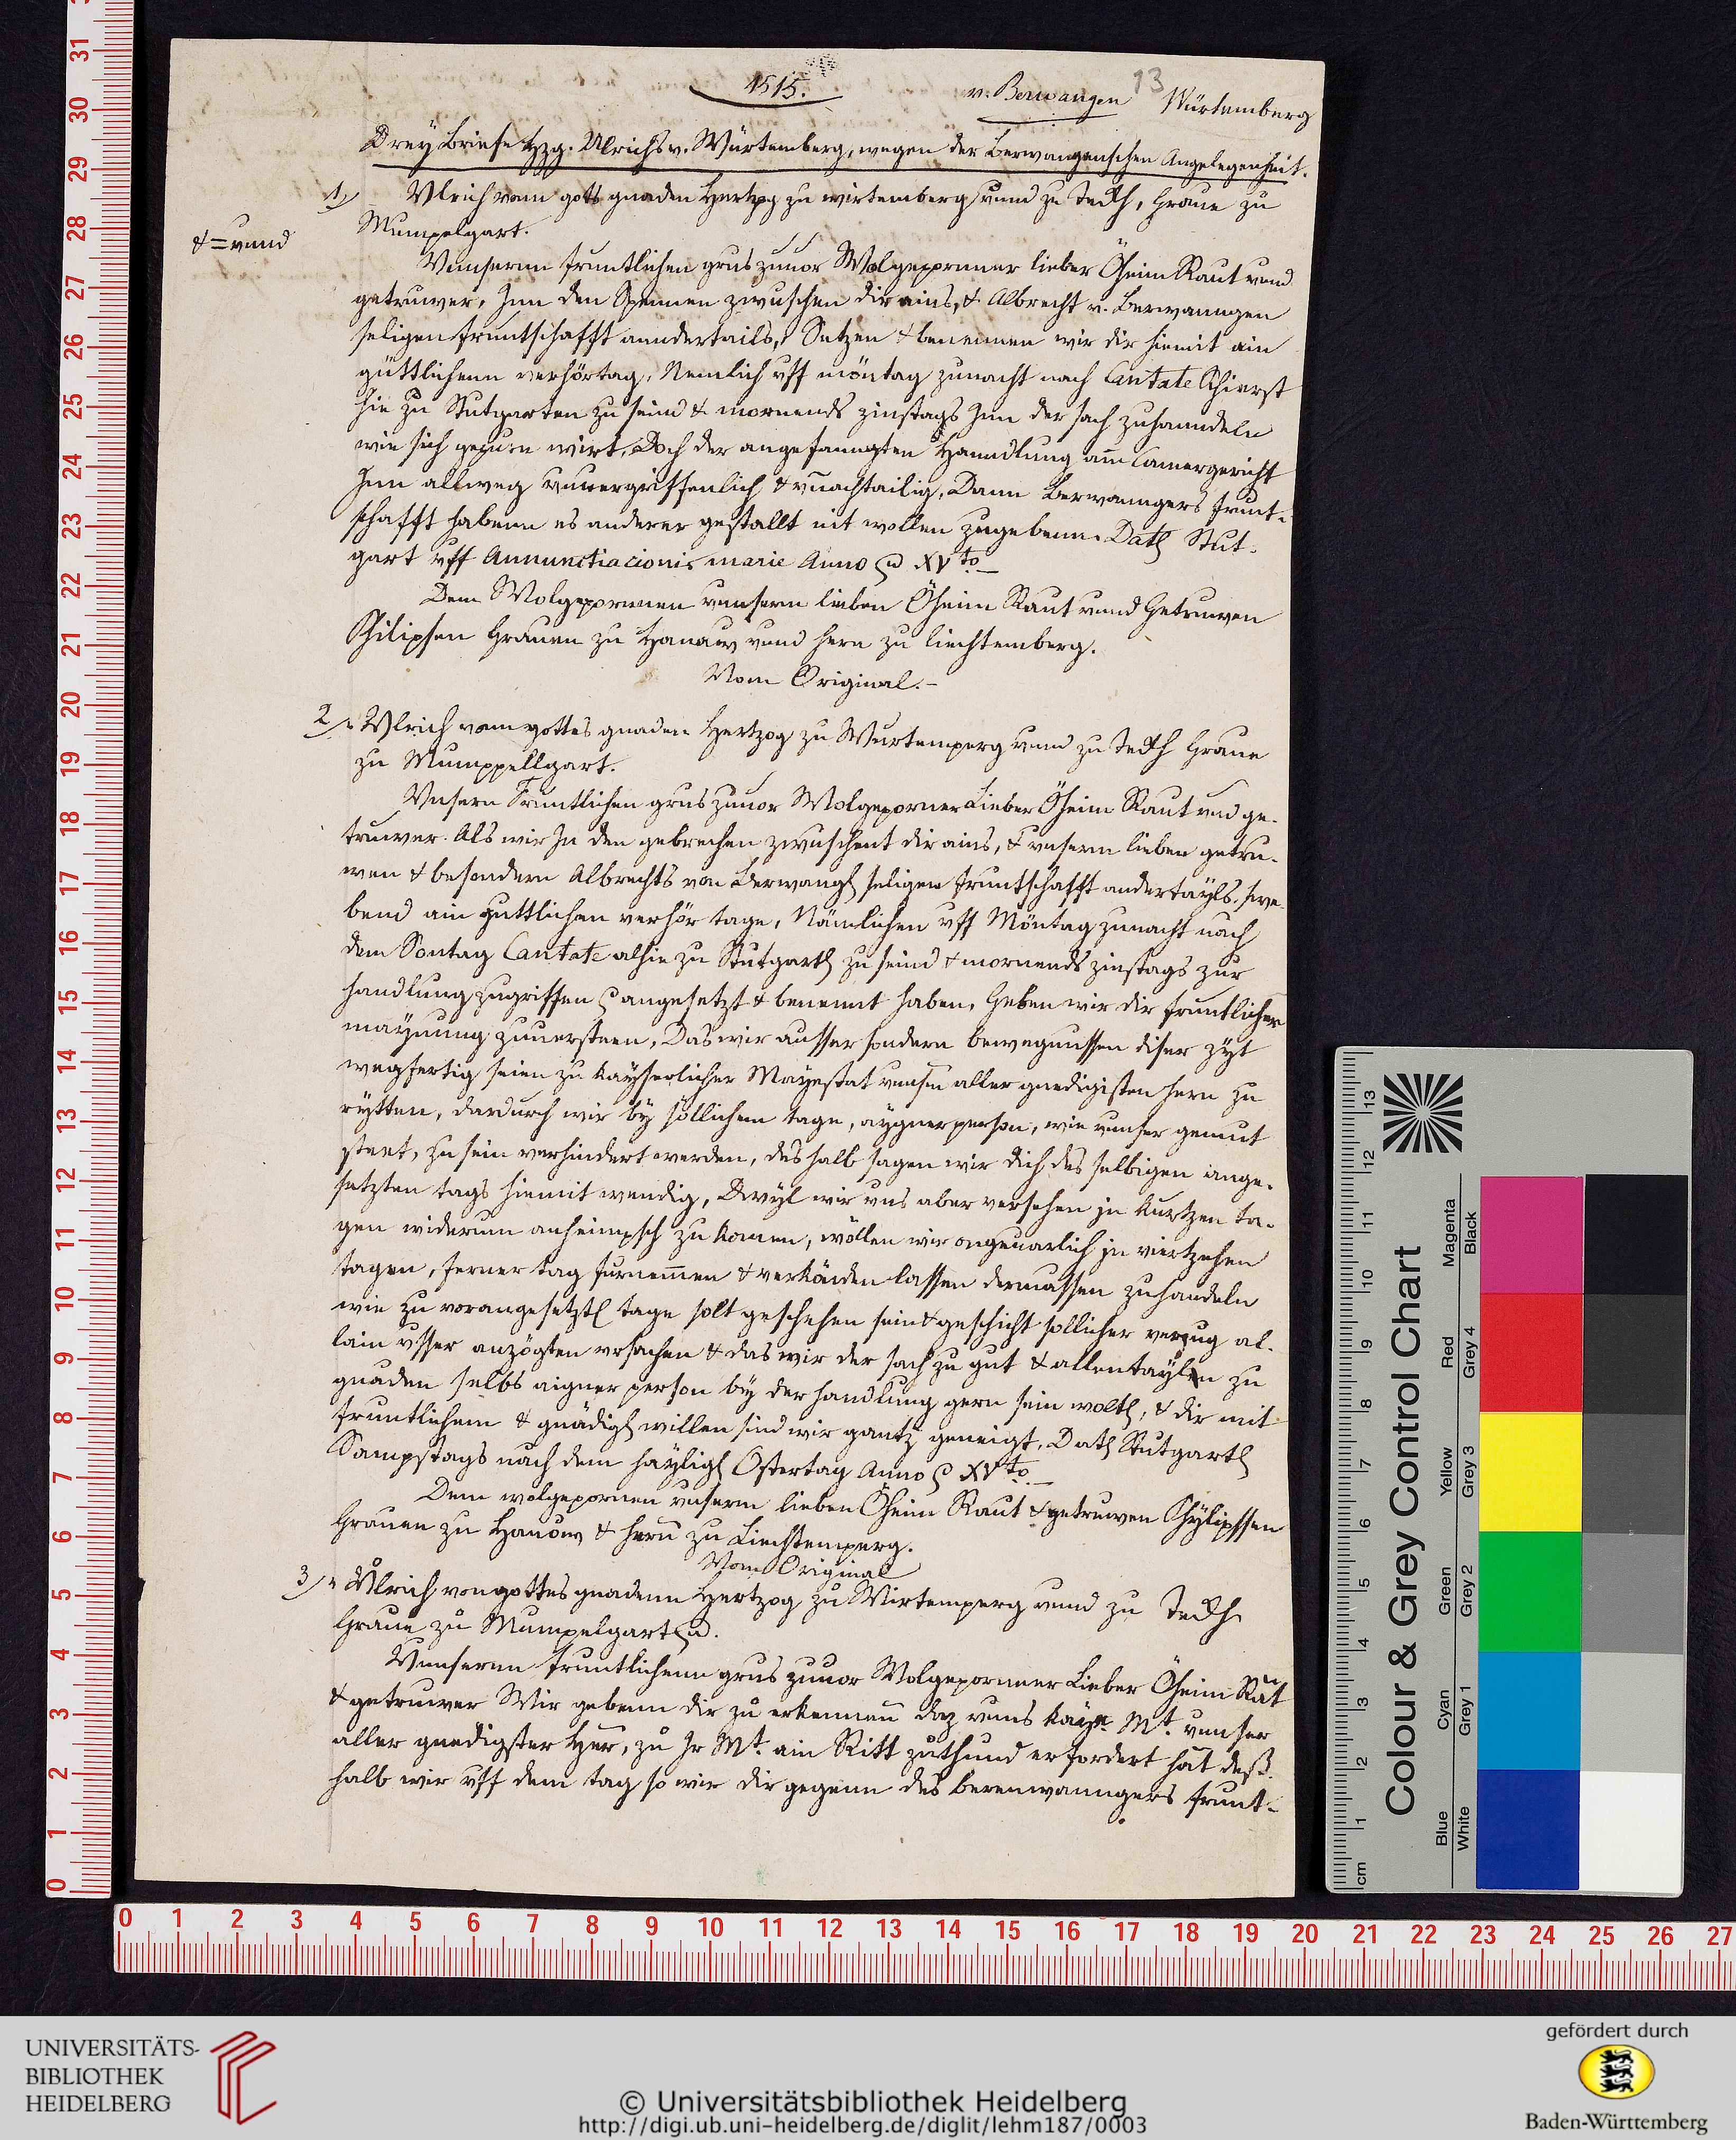 1515.
v. Berwangen 13 Würtemberg
Drey Briefe Hzg. Ulrichs v. Würtemberg, wegen der Berwangenschen Angelegenheit.
1) Vlrich vonn gotts gnaden Hertzog zu wirtemberg vnnd zu Teckh, Graue zu
Mumpelgart.
& = vnnd
Vnnsernn fruntlichen grus zuuor Wolgepornner lieber Öheim Raut vnnd
getruwer, Inn den Spennen zwuschen dir ains, & Albrecht v. Berwanngen
seligen fruntschafft anndertails, Setzen & benennen wir dir hiemit ain
güttlichenn verhörtag, Nemlich vff möntag zunacht nach Cantate schierst
hie zu Stutgarten zu seind & mornends zinstags Inn der sach zuhanndeln
wie sich gepurn wirt, Doch der angefanngten Hanndlung am Camergericht
Inn allweg vnuergriffenlich & vnachtailig, Dann Berwanngers frunt-
schafft habenn es anderer gestallt nit wollen zugebenn. Dat Stut-
gart vff Annunctiacionis marie Anno XV to
Dem Wolgepornnen vnnserm lieben Öheim Raut vnnd Getruwen
Philipsen Grauen zu Hanaw vnnd hern zu liechtemberg.
Vom Original.-
2) Vlrich vom gottes gnaden Hertzog zu Wurtemperg vnnd zu Teckh Graue
zu Mumppellgart.
Vnsern Fruntlichen grus zuuor Wolgeporner Lieber Öheim Raut vnd ge-
truwer. Als wir In den gebrechen zwuschent dir ains, & vnsern lieben getru-
wen & besondern Albrechts von Berwang seligen fruntschafft andertayls, swe-
bend ain guttlichen verhör tage, Nämlichen vff Möntag zunacht nach
dem Sontag Cantate alhie zu Stutgart zu seind & mornends zinstags zur
handlung zugriffen angesetzt & benennt haben, Geben wir dir fruntlicher
maynung zuuersteen, Das wir ausser sondern bewegnussen diser zyt
wegfertig seien zu Kayserlicher Mayestat vnsm aller gnedigisten hern zu
rytten, dardurch wir by söllichem tage, aygner person, wie vnnser gemut
steet, zu sein verhindert werden, deshalb sagen wir dich des selbigen ange-
setzten tags hiemit wendig, Dwyl wir vns aber versehen in kurtzen ta-
gen widerum anheimpsch zu komen, wöllen wir ongeuarlich in viertzehen
tagen, ferner tag furnemen & verkönden lassen dermassen zuhandeln
wie zu vorangesetzt tage solt geschehen sein & geschicht sollicher verzug al-
lain vsser anzögten vrsachen & das wir der sach zu gut & allentayln zu
gnaden selbs aigner person by der handlung gern sein wolt, & dir mit
fruntlichem & gnädig willen sind wir gantz geneigt, Dat Stutgart
Sampstags nach dem haylig Ostertag Anno XV to
Dem wolgepornen vnserm lieben Öheim Raut & getruwen Phylipssen
Grauen zu Hanöw & hern zu Liechtemperg.
Vom Original
3) Vlrich von gottes gnadenn Hertzog zu Wirtemperg vnnd zu Teckh
Graue zu Mumpelgart.
Vnnsernn fruntlichenn grus zuuor Wolgepornner Lieber Öheim Rat
& getruwer Wir gebenn dir zu erkennen daz vnns kayr Mt. vnnser
aller gnedigster Her, zu Ir Mt. ain Ritt zuthund erfordert hat deß-
halb wir vff dem tag so wir dir gegenn des Berenwanngers frunt-
UNIVERSITÄTS-
BIBLIOTHEK
HEIDELBERG
© Universitätsbibliothek Heidelberg
http://digi.ub.uni-heidelberg.de/diglit/lehm187/0003
gefördert durch
Baden-Württemberg
Colour & Grey Control Chart
Blue Cyan Green Yellow Red Magenta
White Grey 1 Grey 2 Grey 3 Grey 4 Black
cm 1 2 3 4 5 6 7 8 9 10 11 12 13
0 1 2 3 4 5 6 7 8 9 10 11 12 13 14 15 16 17 18 19 20 21 22 23 24 25 26 27
0 1 2 3 4 5 6 7 8 9 10 11 12 13 14 15 16 17 18 19 20 21 22 23 24 25 26 27 28 29 30 31